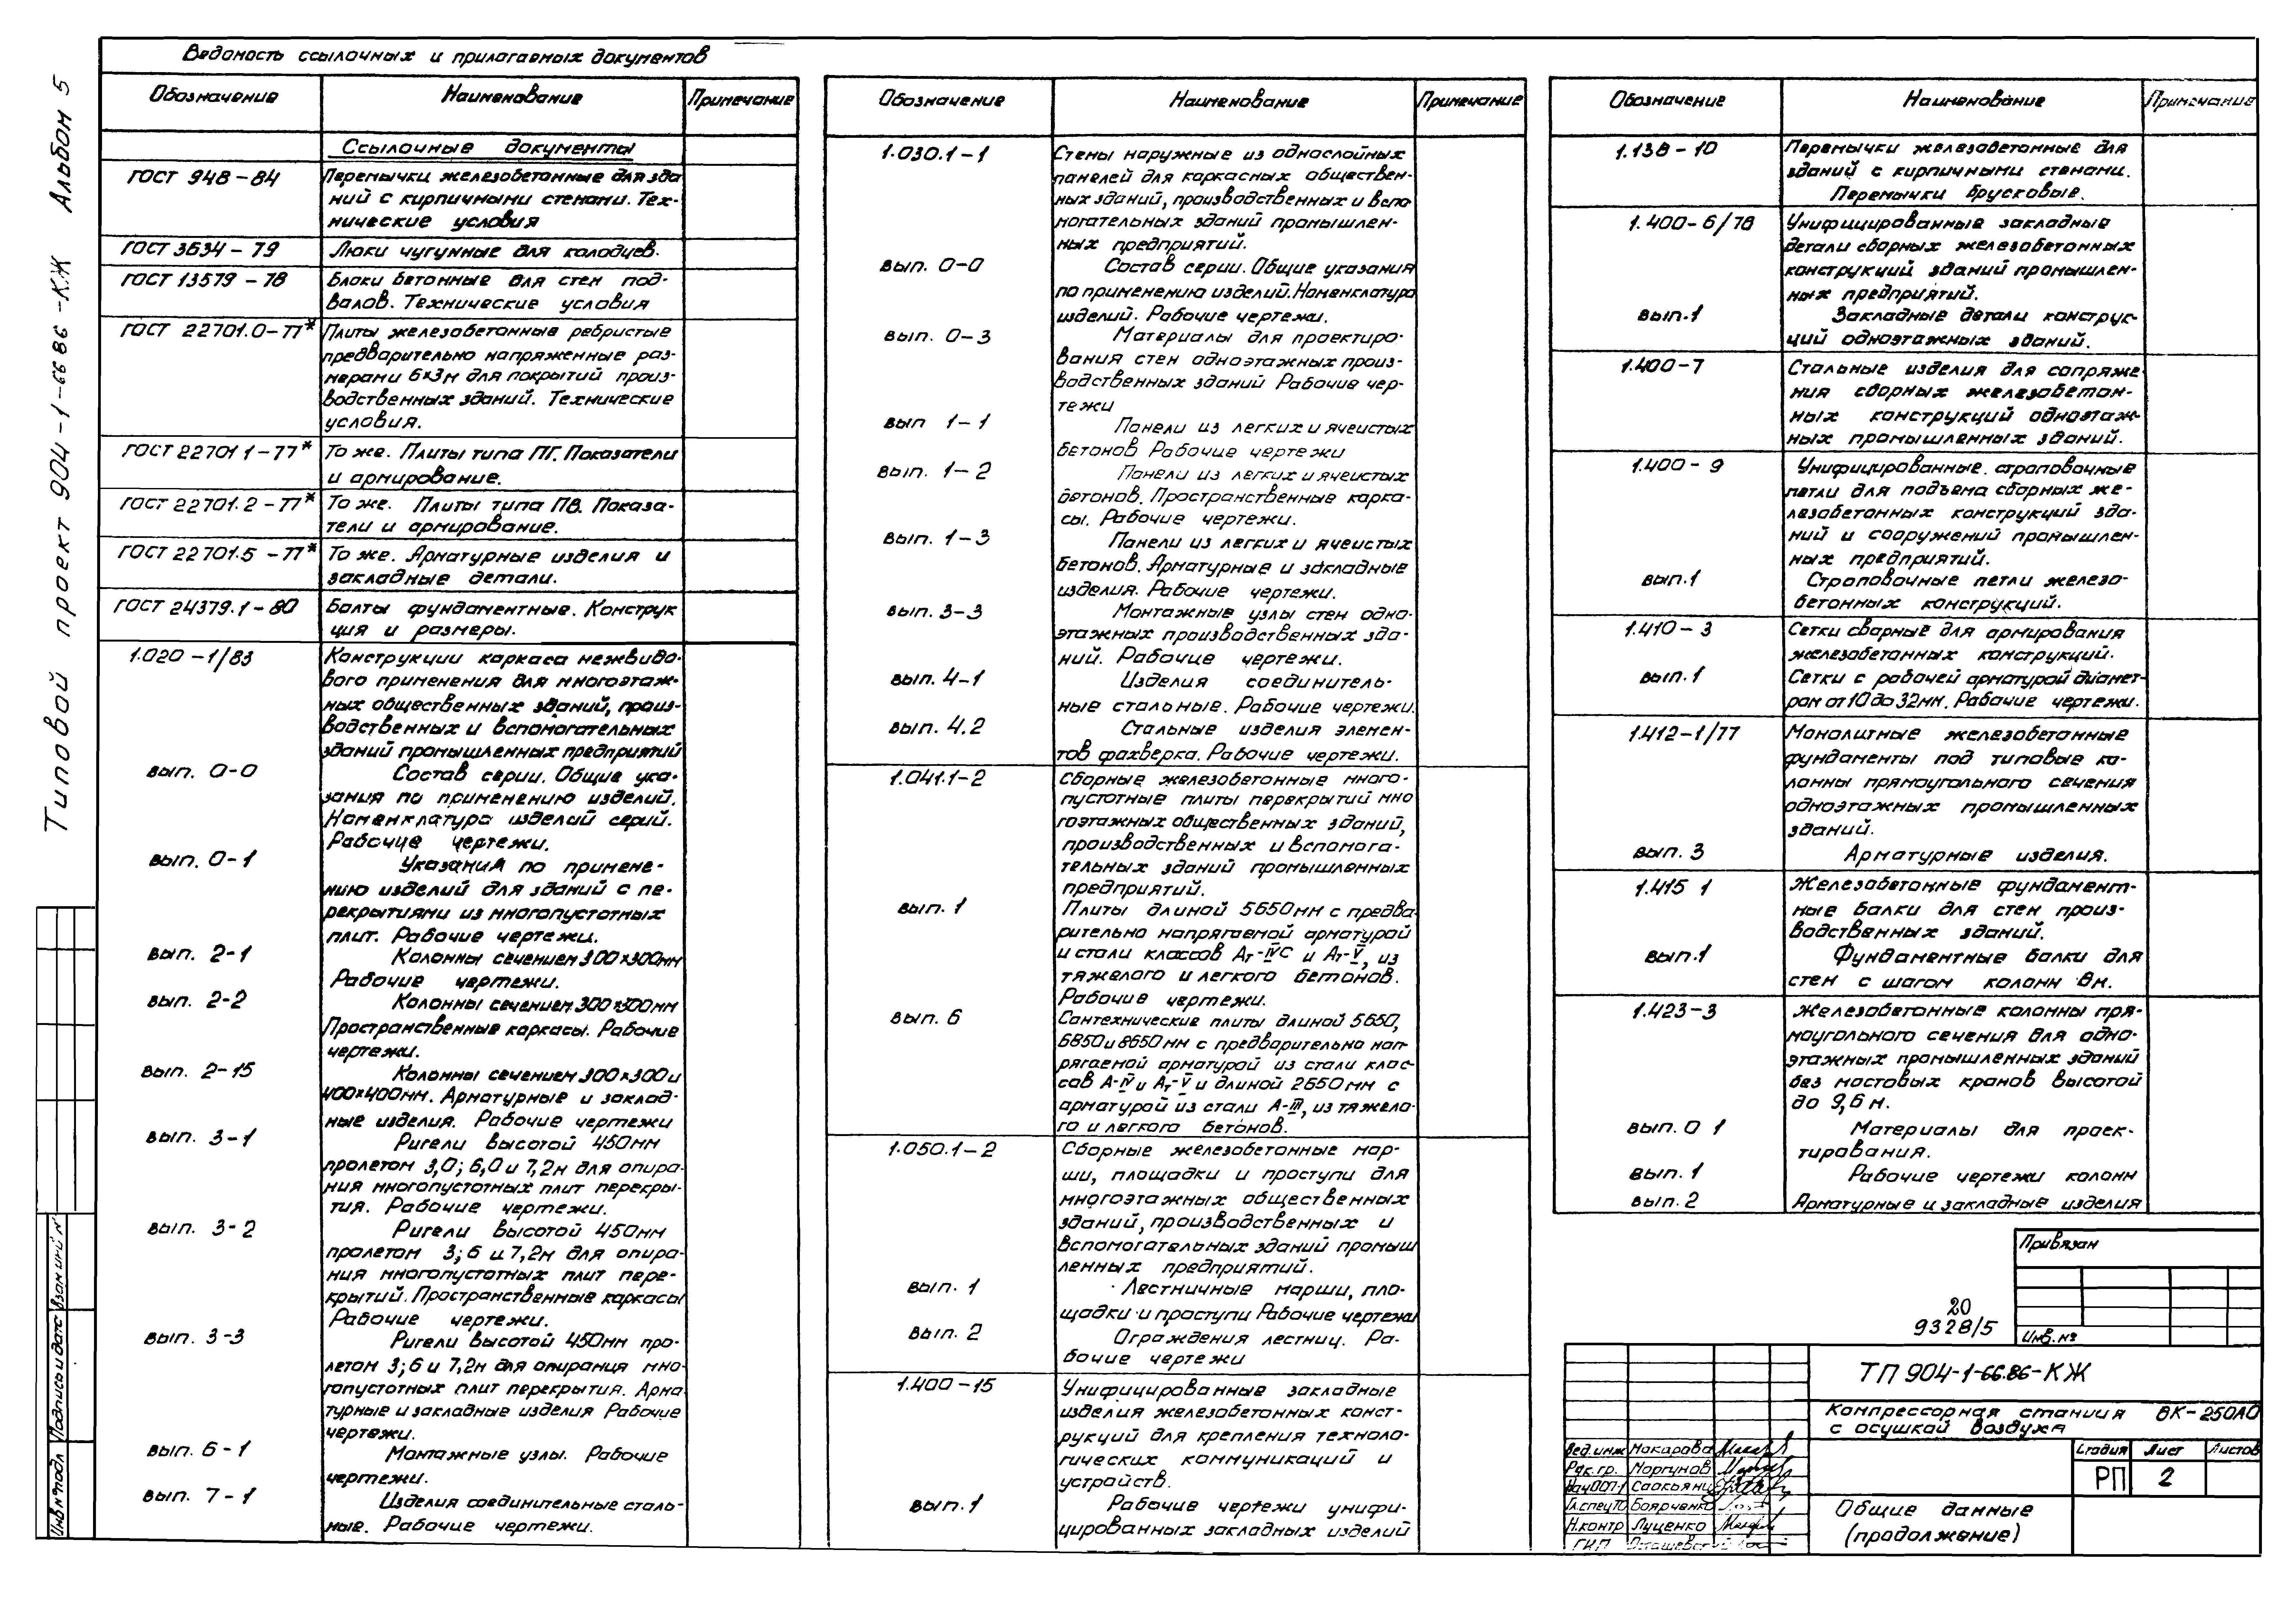 Типовой проект 904-1-66 86-КЖ Альбом 5
Ведомость ссылочных и прилагаемых документов
Обозначение Наименование Примечание
Ссылочные документы
ГОСТ 948-84 Перемычки железобетонные для зда
ний с кирпичными стенами. Тех-
нические условия
ГОСТ 3634-79 Люки чугунные для колодцев.
ГОСТ 13579-78 Блоки бетонные для стен под-
валов. Технические условия
ГОСТ 22701.0-77* Плиты железобетонные ребристые
предварительно напряженные раз-
мерами 6×3м для покрытий произ-
водственных зданий. Технические
условия.
ГОСТ 22701 1-77* То же. Плиты типа ПГ. Показатели
и армирование.
ГОСТ 22701.2-77* То же. Плиты типа ПВ. Показа-
тели и армирование.
ГОСТ 22701.5-77* То же. Арматурные изделия и
закладные детали.
ГОСТ 24379.1-80 Болты фундаментные. Конструк
ция и размеры.
1.020-1/83 Конструкции каркаса межвидо-
вого применения для многоэтаж-
ных общественных зданий, произ-
водственных и вспомогательных
зданий промышленных предприятий
вып. 0-0 Состав серии. Общие ука-
зания по применению изделий.
Номенклатура изделий серий.
Рабочие чертежи.
вып. 0-1 Указания по примене-
нию изделий для зданий с пе-
рекрытиями из многопустотных
плит. Рабочие чертежи.
вып. 2-1 Колонны сечением 300×300мм
Рабочие чертежи.
вып. 2-2 Колонны сечением 300×300мм
Пространственные каркасы. Рабочие
чертежи.
вып. 2-15 Колонны сечением 300×300 и
400×400мм. Арматурные и заклад-
ные изделия. Рабочие чертежи
вып. 3-1 Ригели высотой 450мм
пролетом 3,0; 6,0 и 7,2м для опира-
ния многопустотных плит перекры-
тия. Рабочие чертежи.
вып. 3-2 Ригели высотой 450мм
пролетом 3; 6 и 7,2м для опира-
ния многопустотных плит пере-
крытий. Пространственные каркасы
Рабочие чертежи.
вып. 3-3 Ригели высотой 450мм про-
летом 3; 6 и 7,2м для опирания мно-
гопустотных плит перекрытия. Арма
турные и закладные изделия Рабочие
чертежи.
вып. 6-1 Монтажные узлы. Рабочие
чертежи.
вып. 7-1 Изделия соединительные сталь-
ные. Рабочие чертежи.
Обозначение Наименование Примечание
1.030.1-1 Стены наружные из однослойных
панелей для каркасных обществен-
ных зданий, производственных и вспо
могательных зданий промышлен-
ных предприятий.
вып. 0-0 Состав серии. Общие указания
по применению изделий. Номенклатура
изделий. Рабочие чертежи.
вып. 0-3 Материалы для проектиро-
вания стен одноэтажных произ-
водственных зданий Рабочие чер-
тежи
вып 1-1 Панели из легких и ячеистых
бетонов Рабочие чертежи
вып. 1-2 Панели из легких и ячеистых
бетонов. Пространственные карка-
сы. Рабочие чертежи.
вып. 1-3 Панели из легких и ячеистых
бетонов. Арматурные и закладные
изделия. Рабочие чертежи.
вып. 3-3 Монтажные узлы стен одно-
этажных производственных зда-
ний. Рабочие чертежи.
вып. 4-1 Изделия соединитель-
ные стальные. Рабочие чертежи.
вып. 4.2 Стальные изделия элемен-
тов фахверка. Рабочие чертежи.
1.041.1-2 Сборные железобетонные много-
пустотные плиты перекрытий мно
гоэтажных общественных зданий,
производственных и вспомога-
тельных зданий промышленных
предприятий.
вып. 1 Плиты длиной 5650мм с предва
рительно напрягаемой арматурой
и стали классов Ат-IVС и Ат-V, из
тяжелого и легкого бетонов.
Рабочие чертежи.
вып. 6 Сантехнические плиты длиной 5650,
6850 и 8650мм с предварительно нап-
рягаемой арматурой из стали клас-
сов А-IV и Ат-V и длиной 2650мм с
арматурой из стали А-III, из тяжело-
го и легкого бетонов.
1.050.1-2 Сборные железобетонные мар-
ши, площадки и проступи для
многоэтажных общественных
зданий, производственных и
вспомогательных зданий промыш
ленных предприятий.
вып. 1 Лестничные марши, пло-
щадки и проступи Рабочие чертежи
вып. 2 Ограждения лестниц. Ра-
бочие чертежи
1.400-15 Унифицированные закладные
изделия железобетонных конст-
рукций для крепления техноло-
гических коммуникаций и
устройств.
вып. 1 Рабочие чертежи унифи-
цированных закладных изделий
Обозначение Наименование Примечание
1.138-10 Перемычки железобетонные для
зданий с кирпичными стенами.
Перемычки брусковые.
1.400-6/78 Унифицированные закладные
детали сборных железобетонных
конструкций зданий промышлен-
ных предприятий.
вып.1 Закладные детали конструк-
ций одноэтажных зданий.
1.400-7 Стальные изделия для сопряже
ния сборных железобетон-
ных конструкций одноэтаж-
ных промышленных зданий.
1.400-9 Унифицированные строповочные
петли для подъема сборных же-
лезобетонных конструкций зда-
ний и сооружений промышлен-
ных предприятий.
вып.1 Строповочные петли железо-
бетонных конструкций.
1.410-3 Сетки сварные для армирования
железобетонных конструкций.
вып.1 Сетки с рабочей арматурой диамет-
ром от 10 до 32мм. Рабочие чертежи.
1.412-1/77 Монолитные железобетонные
фундаменты под типовые ко-
лонны прямоугольного сечения
одноэтажных промышленных
зданий.
вып. 3 Арматурные изделия.
1.415 1 Железобетонные фундамент-
ные балки для стен произ-
водственных зданий.
вып.1 Фундаментные балки для
стен с шагом колонн 6м.
1.423-3 Железобетонные колонны пря-
моугольного сечения для одно-
этажных промышленных зданий
без мостовых кранов высотой
до 9,6 м.
вып. 0 1 Материалы для проек-
тирования.
вып. 1 Рабочие чертежи колонн
вып. 2 Арматурные и закладные изделия
Привязан
Инв. №
20
9328/5
ТП 904-1-66.86-КЖ
Компрессорная станция ВК-250А0
с осушкой воздуха
Вед.инж Макарова
Рук.гр. Моргунов
Нач ОСП-1 Саакьянц
Гл.спец ТО Боярченко
Н.контр Луценко
ГИП
Стадия Лист Листов
РП 2
Общие данные
(продолжение)
Инв № подл Подпись и дата Взам инв №